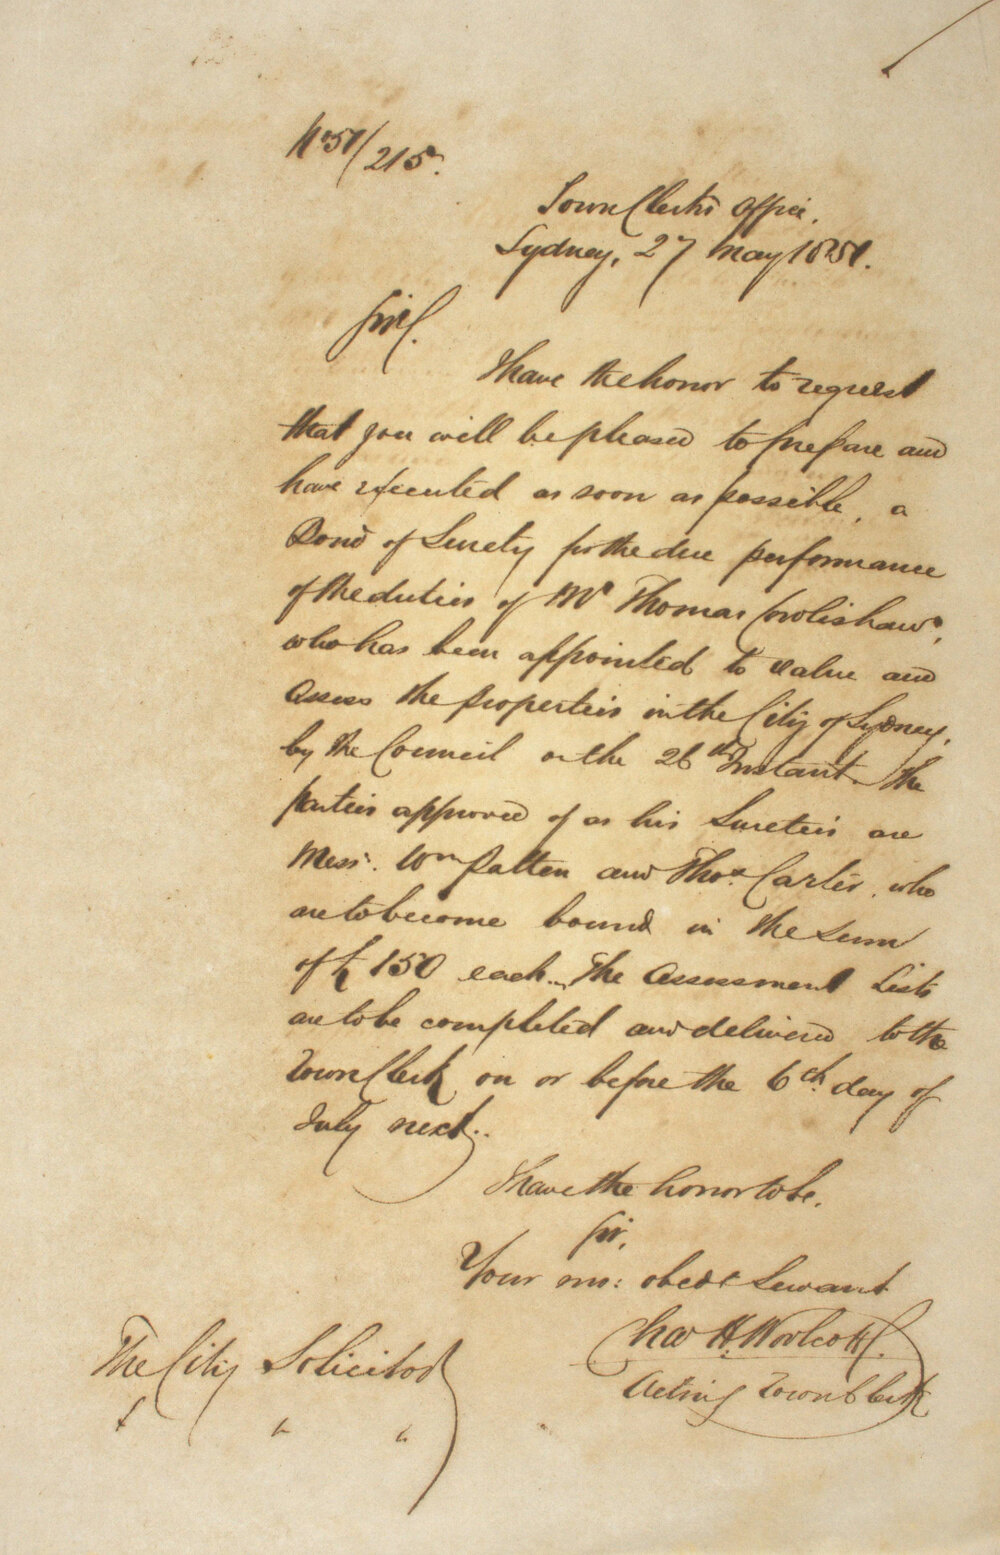 No 51/215.
Town Clerk's Office.
Sydney, 27 May 1851.
Sir,
I have the honor to request
that you will be pleased to prepare and
have executed as soon as possible, a
Bond of Surety for the due performance
of the duties of Mr Thomas Crolishaw,
who has been appointed to value and
assess the properties in the City of Sydney,
by the Council on the 26th Instant. The
parties approved of as his Sureties are
Messrs. Wm Patten and Thos. Carter, who
are to become bound in the sum
of £150 each. The Assessment Lists
are to be completed and delivered to the
Town Clerk on or before the 6th day of
July next.
I have the honor to be,
Sir,
Your mo: obedt Servant
Chas H. Woolcott
Acting Town Clerk
The City Solicitor